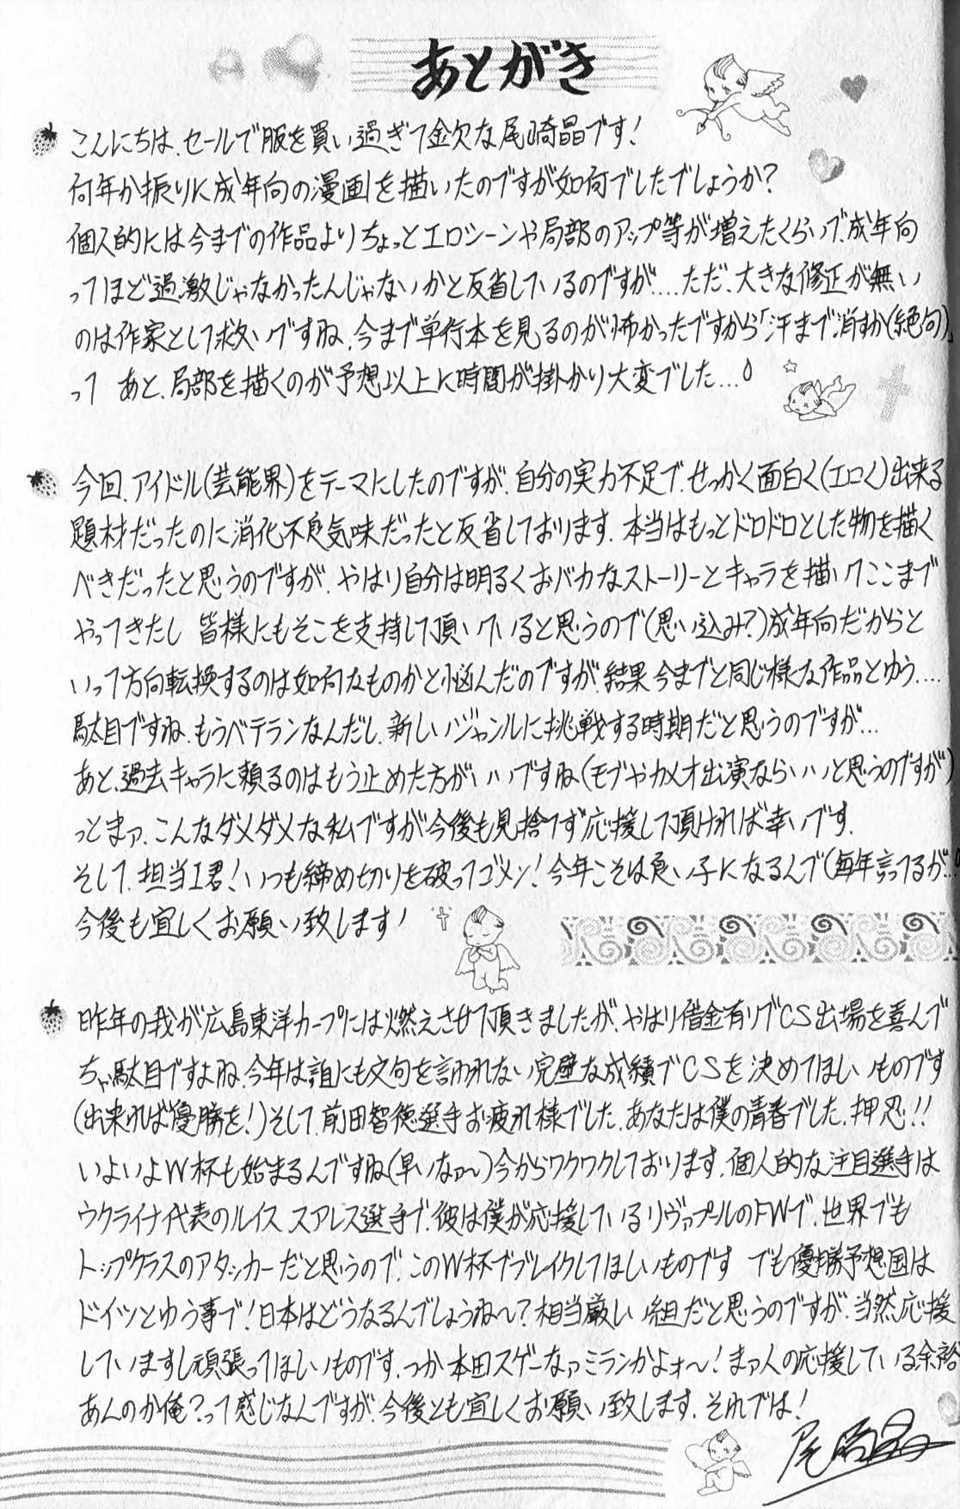 あとがき
こんにちは、セールで服を買い過ぎて金欠な尾崎晶です!
何年か振りに成年向の漫画を描いたのですが如何でしたでしょうか?
個人的には今までの作品よりちょっとエロシーンや局部のアップ等が増えたくらいで、成年向
ってほど過激じゃなかったんじゃないかと反省しているのですが....ただ、大きな修正が無い
のは作家として救いですね、今まで単行本を見るのが怖かったですから「汗まで消すか(絶句)」
って あと、局部を描くのが予想以上に時間が掛かり大変でした...
今回、アイドル(芸能界)をテーマにしたのですが、自分の実力不足で、せっかく面白く(エロく)出来る
題材だったのに消化不良気味だったと反省しております、本当はもっとドロドロとした物を描く
べきだったと思うのですが、やはり自分は明るくおバカなストーリーとキャラを描いてここまで
やってきたし 皆様にもそこを支持して頂いていると思うので(思い込み?)成年向だからと
いって方向転換するのは如何なものかと悩んだのですが、結果今までと同じ様な作品とゆう....
駄目ですね、もうベテランなんだし、新しいジャンルに挑戦する時期だと思うのですが...
あと、過去キャラに頼るのはもう止めた方がいいですね(モブやカメオ出演ならいいと思うのですが)
っとまァ、こんなダメダメな私ですが今後も見捨てず応援して頂ければ幸いです、
そして、担当I君!いつも締め切りを破ってゴメン!今年こそは良い子になるんで(毎年言ってるが...)
今後も宜しくお願い致します!
昨年の我が広島東洋カープには燃えさせて頂きましたが、やはり借金有りでCS出場を喜んで
ちゃ駄目ですよね、今年は誰にも文句を言われない完璧な成績でCSを決めてほしいものです
(出来れば優勝を!)そして、前田智徳選手お疲れ様でした、あなたは僕の青春でした、押忍!!
いよいよW杯も始まるんですね(早いなァ~)今からワクワクしております、個人的な注目選手は
ウクライナ代表のルイス スアレス選手で、彼は僕が応援しているリヴァプールのFWで、世界でも
トップクラスのアタッカーだと思うので、このW杯でブレイクしてほしいものです でも優勝予想国は
ドイツとゆう事で!日本はどうなるんでしょうね~?相当厳しい組だと思うのですが、当然応援
していますし頑張ってほしいものです、つか本田スゲーなァミランかよォ~!まァ人の応援している余裕
あんのか俺?って感じなんですが、今後とも宜しくお願い致します、それでは!
尾崎晶